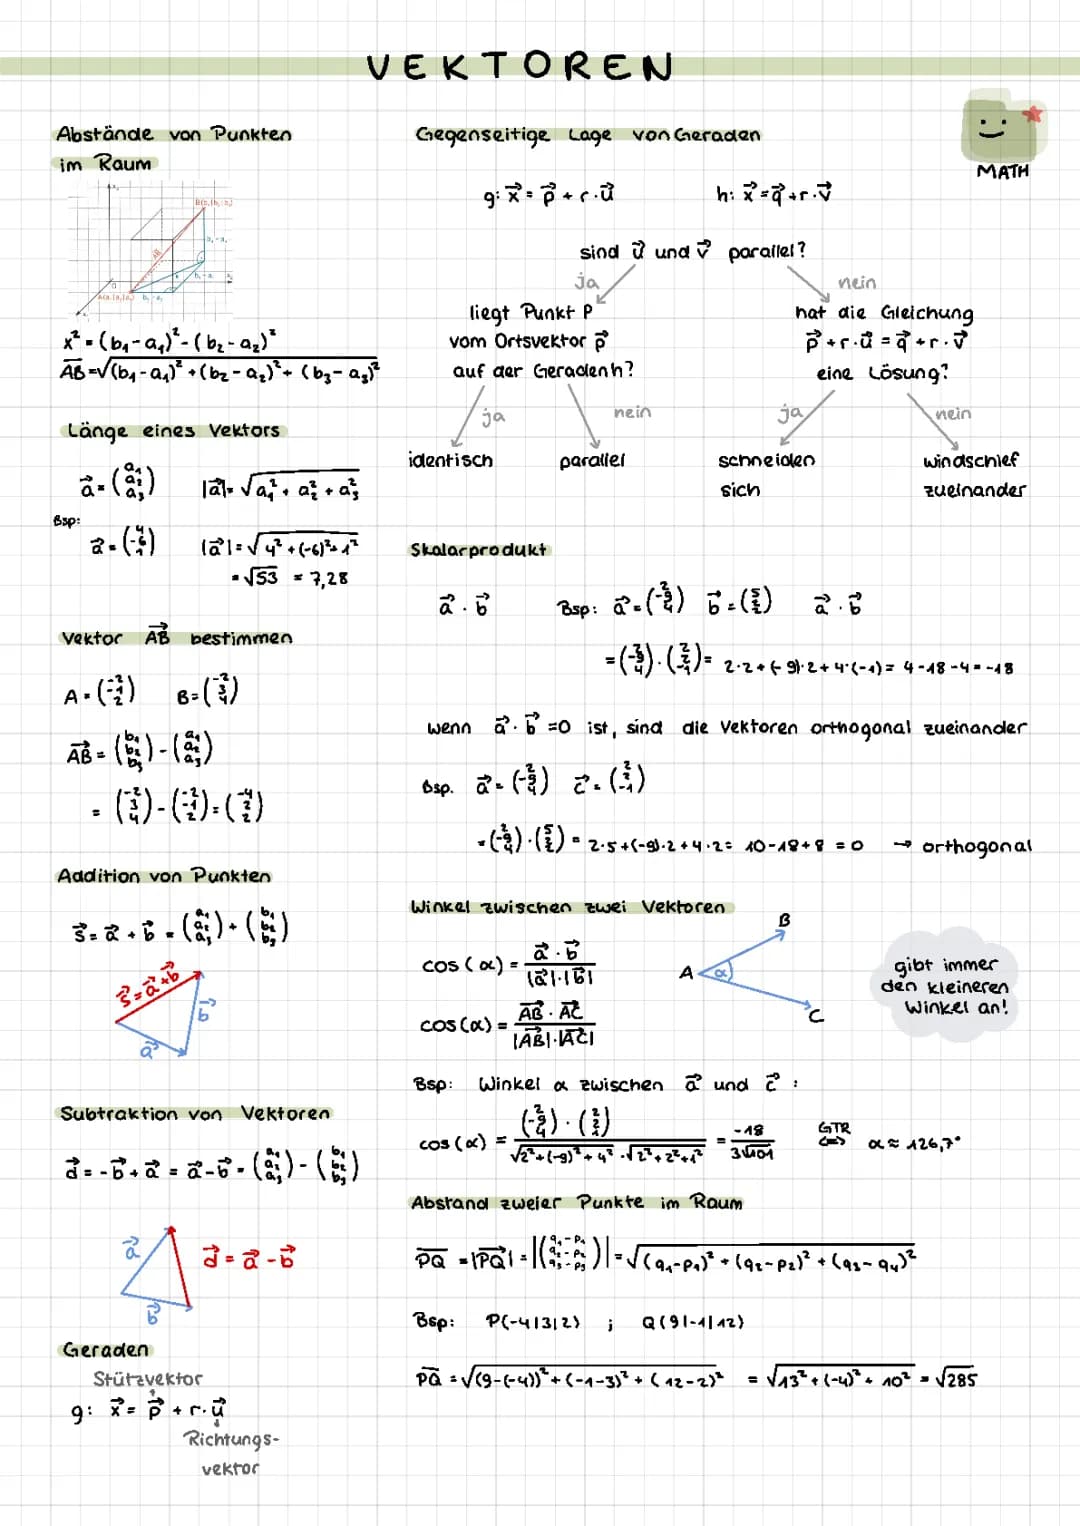 VEKTOREN
MATH
Abstände von Punkten
im Raum
x² = (b₁-a₁)² - (b₂-a₂)²
AB = √(b₁-a₁)² + (b₂-a₂)² + (b₃-a₃)²
Länge eines Vektors
a⃗ = (a₁ a₂ a₃) |a⃗| = √a₁² + a₂² + a₃²
Bsp:
a⃗ = (4 -6 1) |a⃗| = √4² + (-6)² + 1²
= √53 = 7,28
Vektor AB⃗ bestimmen
A = (-2 -1 2) B = (-2 3 4)
AB⃗ = (b₁ b₂ b₃) - (a₁ a₂ a₃)
= (-2 3 4) - (-2 -1 2) = (-4 2 2)
Addition von Punkten
s⃗ = a⃗ + b⃗ = (a₁ a₂ a₃) + (b₁ b₂ b₃)
s⃗ = a⃗ + b⃗
b⃗
a⃗
Subtraktion von Vektoren
d⃗ = -b⃗ + a⃗ = a⃗ - b⃗ = (a₁ a₂ a₃) - (b₁ b₂ b₃)
a⃗
d⃗ = a⃗ - b⃗
b⃗
Geraden
Stützvektor
g: x⃗ = p⃗ + r·u⃗
Richtungs-
vektor
Gegenseitige Lage von Geraden
g: x⃗ = p⃗ + r·u⃗ h: x⃗ = q⃗ + r·v⃗
sind u⃗ und v⃗ parallel?
ja nein
liegt Punkt P
vom Ortsvektor p⃗
auf der Geraden h?
hat die Gleichung
p⃗ + r·u⃗ = q⃗ + r·v⃗
eine Lösung?
ja nein ja nein
identisch parallel
schneiden
sich
windschief
zueinander
Skalarprodukt
a⃗ · b⃗ Bsp: a⃗ = (2 -9 4) b⃗ = (5 2 2) a⃗ · b⃗
= (2 -9 4) · (2 2 -1) = 2·2 + (-9)·2 + 4·(-1) = 4 -18 -4 = -18
wenn a⃗ · b⃗ = 0 ist, sind die Vektoren orthogonal zueinander
Bsp. a⃗ = (2 -9 4) c⃗ = (2 2 -1)
= (2 -9 4) · (5 2 2) = 2·5 + (-9)·2 + 4·2 = 10 -18 + 8 = 0 → orthogonal
Winkel zwischen zwei Vektoren
cos(α) = a⃗ · b⃗ / |a⃗|·|b⃗|
cos(α) = AB⃗ · AC⃗ / |AB⃗|·|AC⃗|
A α B C
gibt immer
den kleineren
Winkel an!
Bsp: Winkel α zwischen a⃗ und c⃗ :
cos(α) = (2 -9 4) · (2 2 1) / √2² + (-9)² + 4² · √2² + 2² + 1² = -18 / 3√101 GTR ⇔ α ≈ 126,7°
Abstand zweier Punkte im Raum
PQ = |PQ⃗| = |(q₁-p₁ q₂-p₂ q₃-p₃)| = √(q₁-p₁)² + (q₂-p₂)² + (q₃-q₄)²
Bsp: P(-4|3|2) ; Q(9|-1|12)
PQ = √(9-(-4))² + (-1-3)² + (12-2)² = √13² + (-4)² + 10² = √285